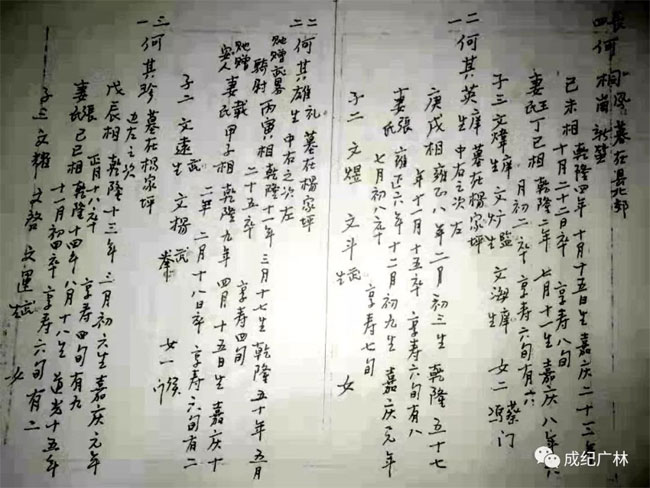 墓在县北部
四何相
己未相 乾隆四年十月十五日生 嘉庆二十三年
十月二十二日卒 享寿八旬
妻王氏 丁巳相 乾隆二年 七月十一生 嘉庆八年八
月初二卒 享寿六旬有六
子三 文煒庠生 文炉監生 文海庠生 女二 蔡冯门
一
二何其英庠生 墓在杨家坪
中右之次左
庚戌相 雍正八年二月初三生 乾隆五十七
年十一月十五卒 享寿六旬有八
妻張氏 雍正六年十二月初九生 嘉庆元年
七月初八卒 享寿七旬
子二 文煜 文斗武生 女
二
二何其雄礼生 墓在楊家坪
中右之次左
驰赠武畧騎尉 丙寅相 乾隆十一年 三月十七生 乾隆五十年五月
二十五卒 享寿四旬
妻戴氏 甲子相 乾隆九年 四月十五日生 嘉庆十
二年二月十八日卒 享寿六旬有二
子二 文遠武生 文揚武举 女一 侯门
三何其珍 墓在楊家坪
边左之次
一
戊辰相 乾隆十三年 三月初六生 嘉庆元年
正月十八卒 享寿四旬有九
妻張氏 己巳相 乾隆十四年八月十八生 道光十五年
十一月初四卒 享寿六旬有二
子三 文耀 文啓 文運武生 女
成纪广林